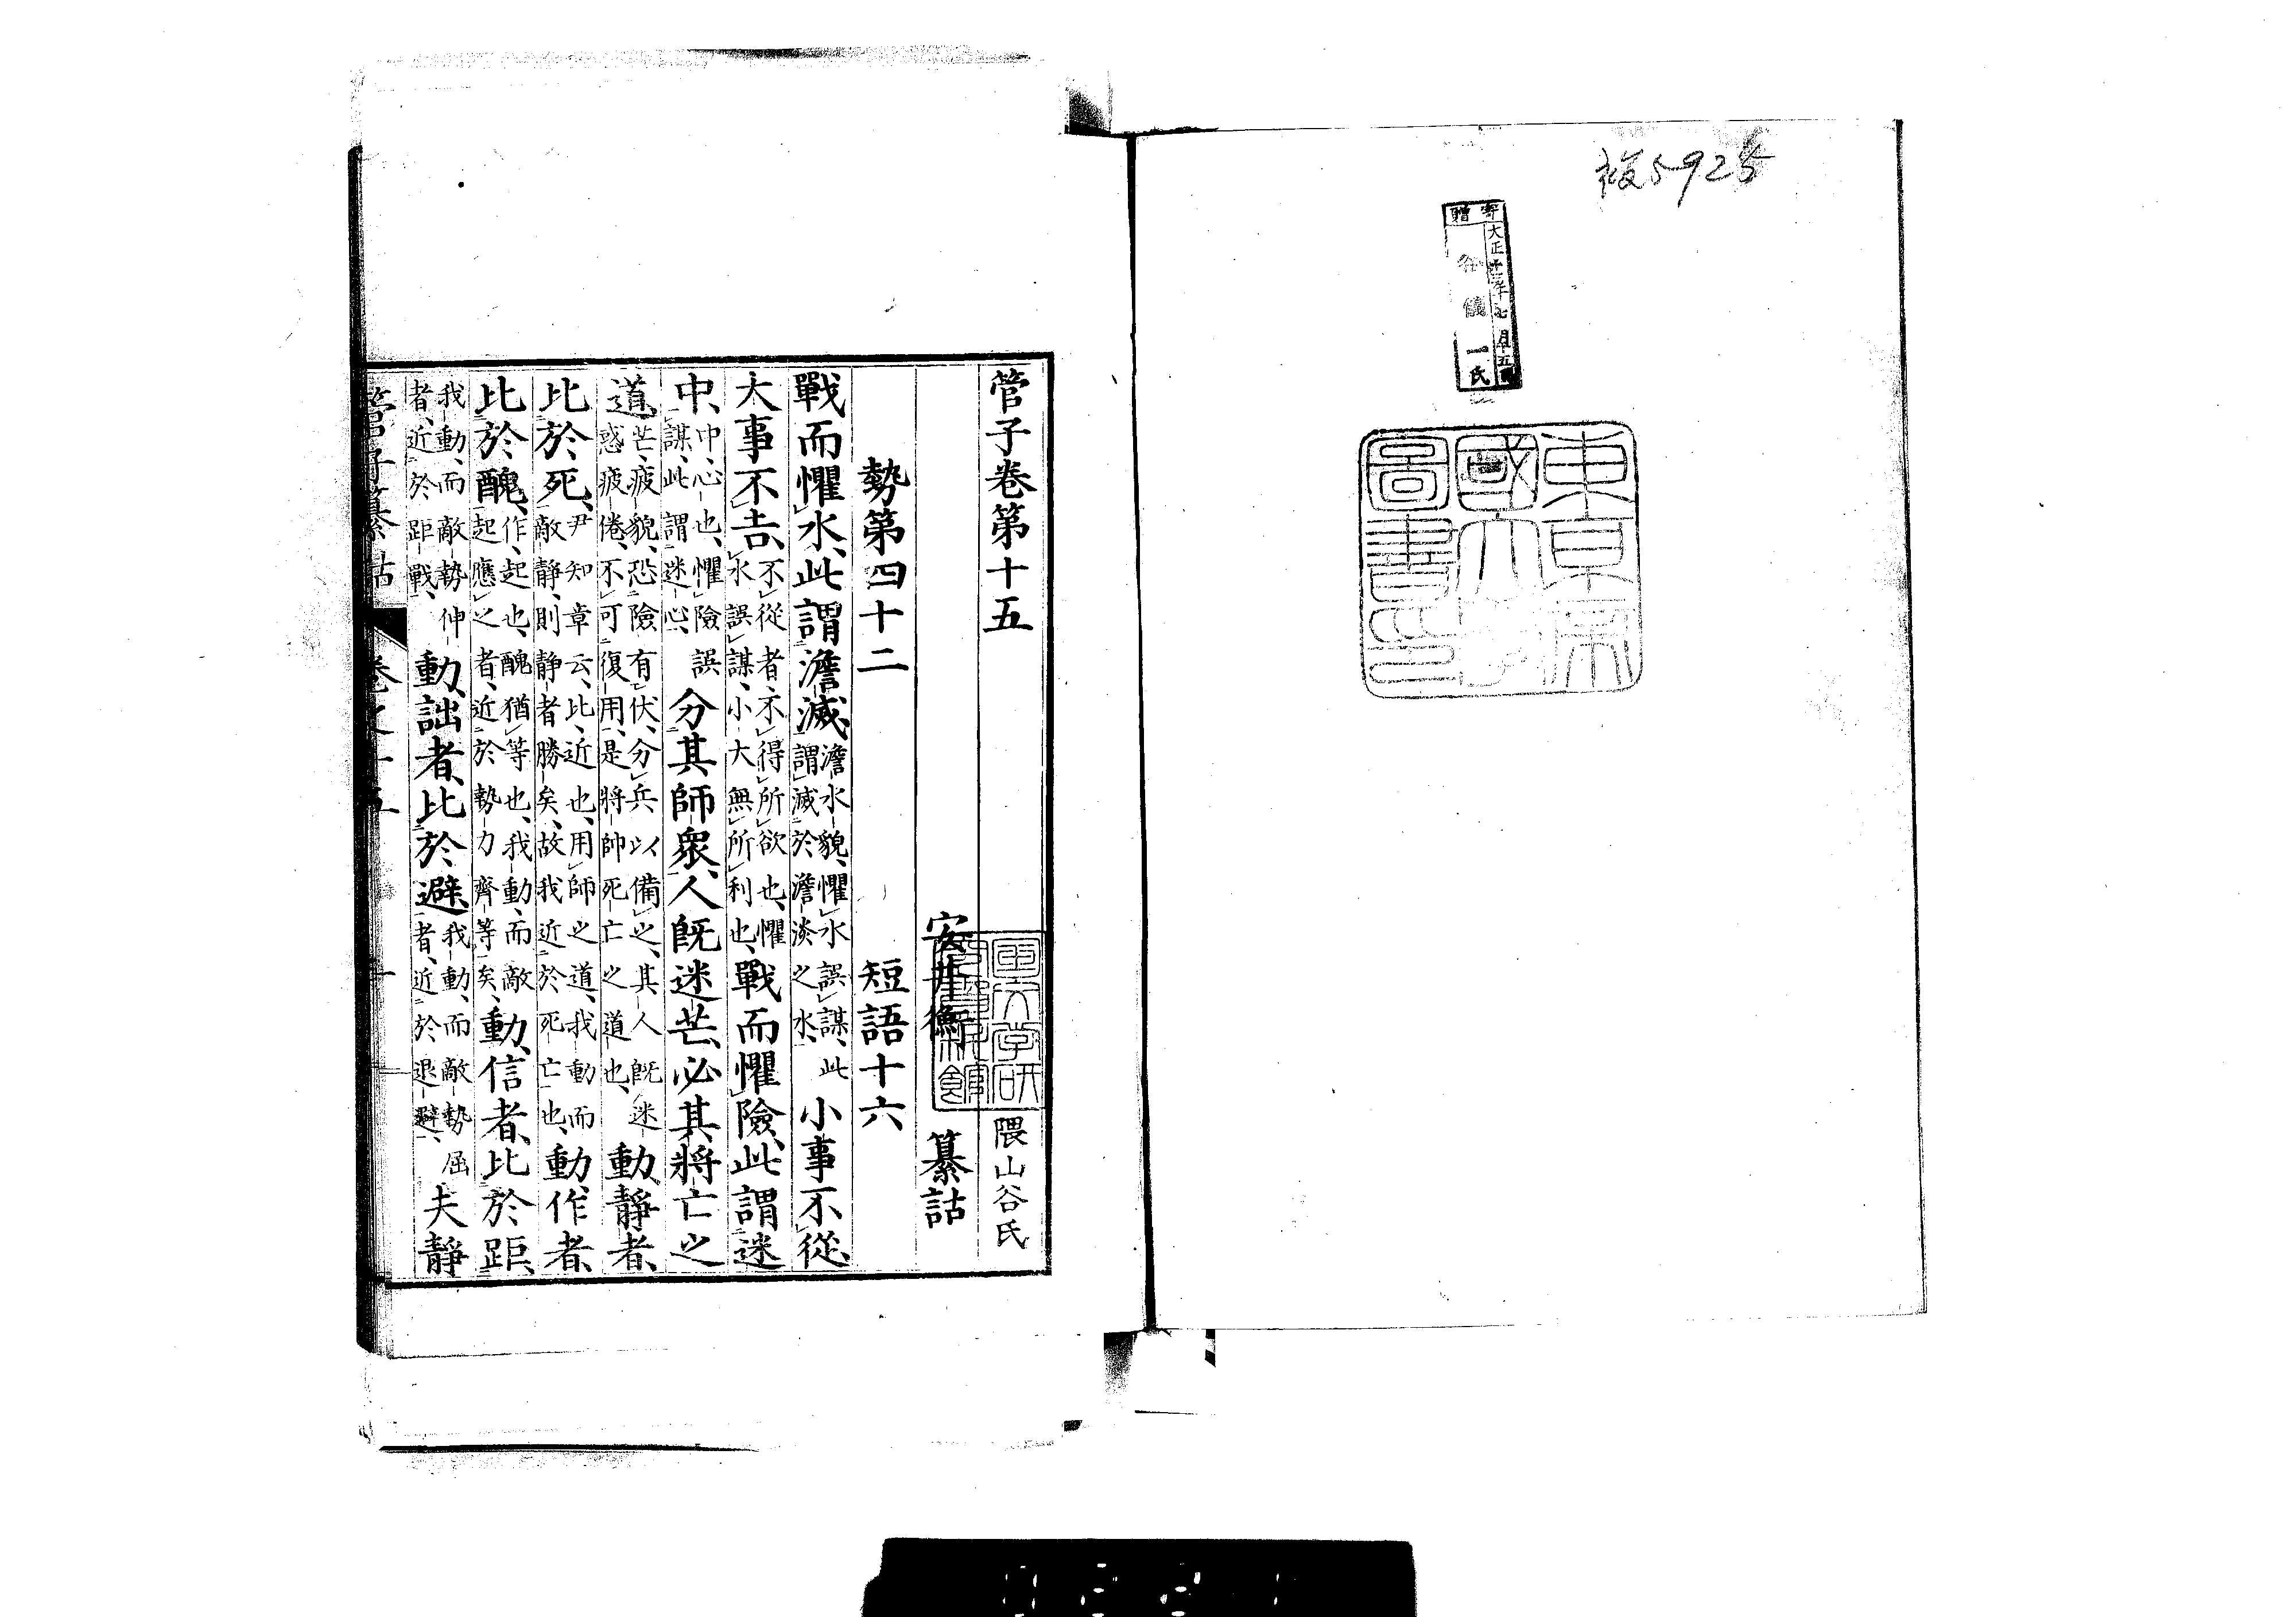 複5925
寄贈
大正十三年七月五日
谷儀一氏
東京帝
國大學
圖書印
管子卷第十五
隈山谷氏
安井衡 纂詁
勢第四十二 短語十六
戰而懼水、此謂澹滅、澹水貌、懼水誤謀、此謂滅於澹淡之水、小事不從、
大事不吉、不從者、不得所欲也、懼水誤謀、小大無所利也、戰而懼險、此謂迷
中、中、心也、懼險誤謀、此謂迷心、分其師衆、人旣迷芒、必其將亡之
道、芒、疲貌、恐險有伏、分兵以備之、其人旣迷惑疲倦、不可復用、是將帥死亡之道也、動靜者、
比於死、尹知章云、比、近也、用師之道、我動而敵靜、則靜者勝矣、故我近於死亡也、動作者、
比於醜、作、起也、醜猶等也、我動、而敵起應之者、近於勢力齊等矣、動信者、比於距、
我動、而敵勢伸者、近於距戰、動詘者、比於避、我動、而敵勢屈者、近於退避、夫靜
管子纂詁 卷之十五 一